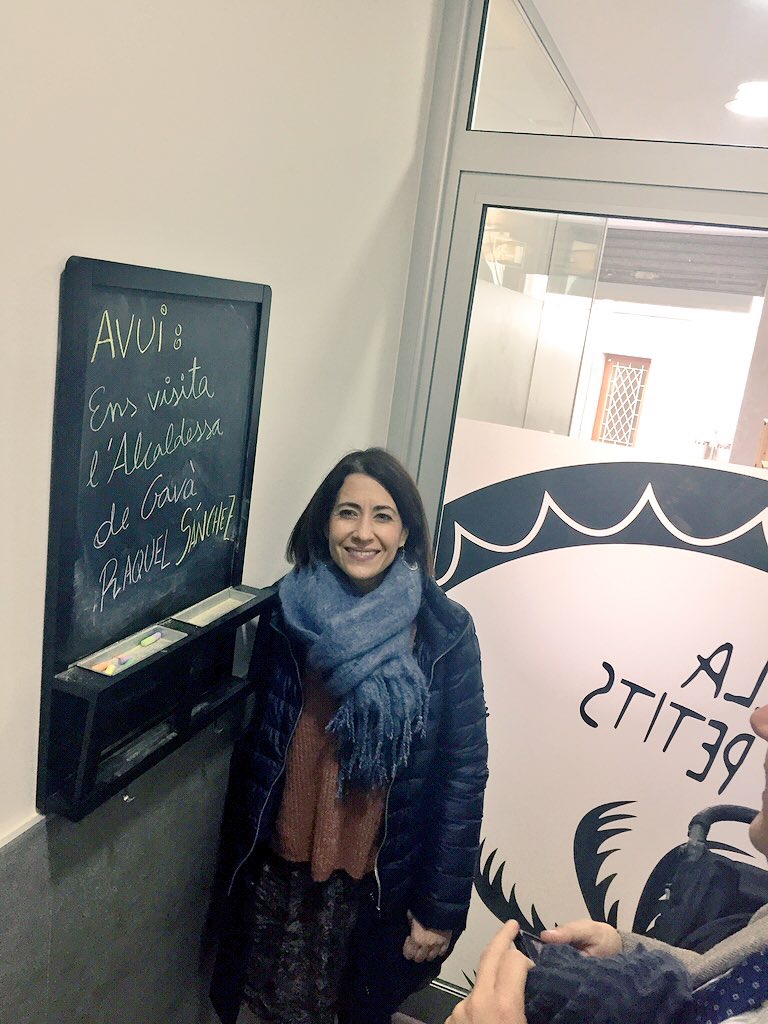 AVUi:
Ens visita
l'Alcaldessa
de Gavà
RAQUEL SÁNCHEZ
LA
PETITS